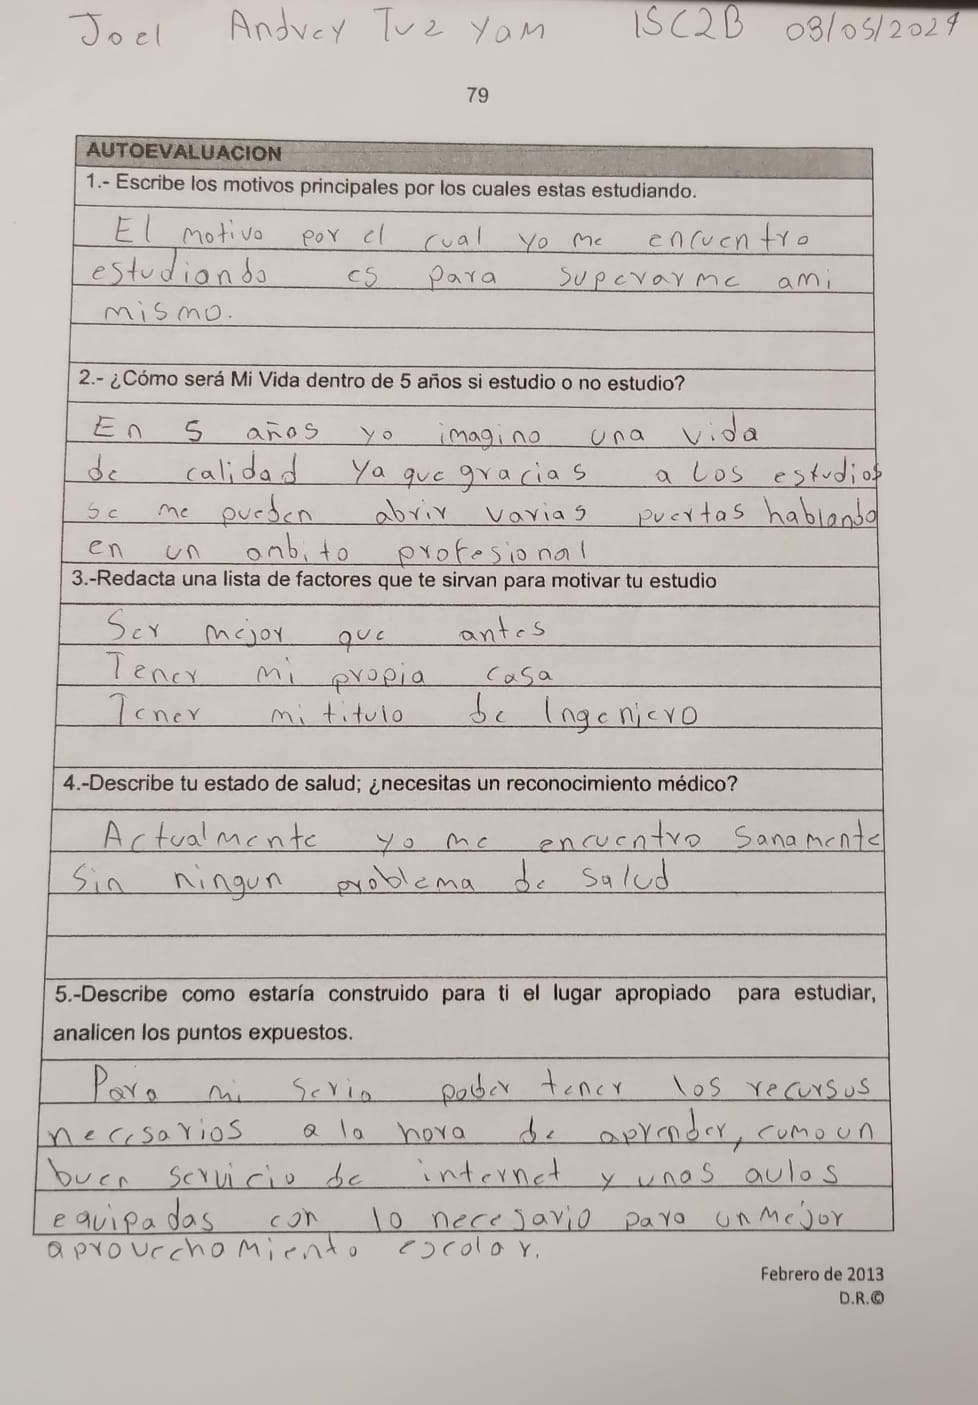 Joel Andrey Tuz Yam ISC2B 03/05/2024
79
AUTOEVALUACION
1.- Escribe los motivos principales por los cuales estas estudiando.
El motivo por el cual yo me encuentro
estudiando es para superarme ami
mismo.
2.- ¿Cómo será Mi Vida dentro de 5 años si estudio o no estudio?
En 5 años yo imagino una vida
de calidad ya que gracias a los estudios
se me pueden abrir varias puertas hablando
en un ambito profesional
3.-Redacta una lista de factores que te sirvan para motivar tu estudio
Ser mejor que antes
Tener mi propia casa
Tener mi titulo de Ingeniero
4.-Describe tu estado de salud; ¿necesitas un reconocimiento médico?
Actualmente yo me encuentro Sanamente
Sin ningun problema de salud
5.-Describe como estaría construido para ti el lugar apropiado para estudiar,
analicen los puntos expuestos.
Para mi seria poder tener los recursos
necesarios a la hora de aprender, como un
buen servicio de internet y unas aulas
equipadas con lo necesario para un mejor
aprovechamiento escolar.
Febrero de 2013
D.R.©